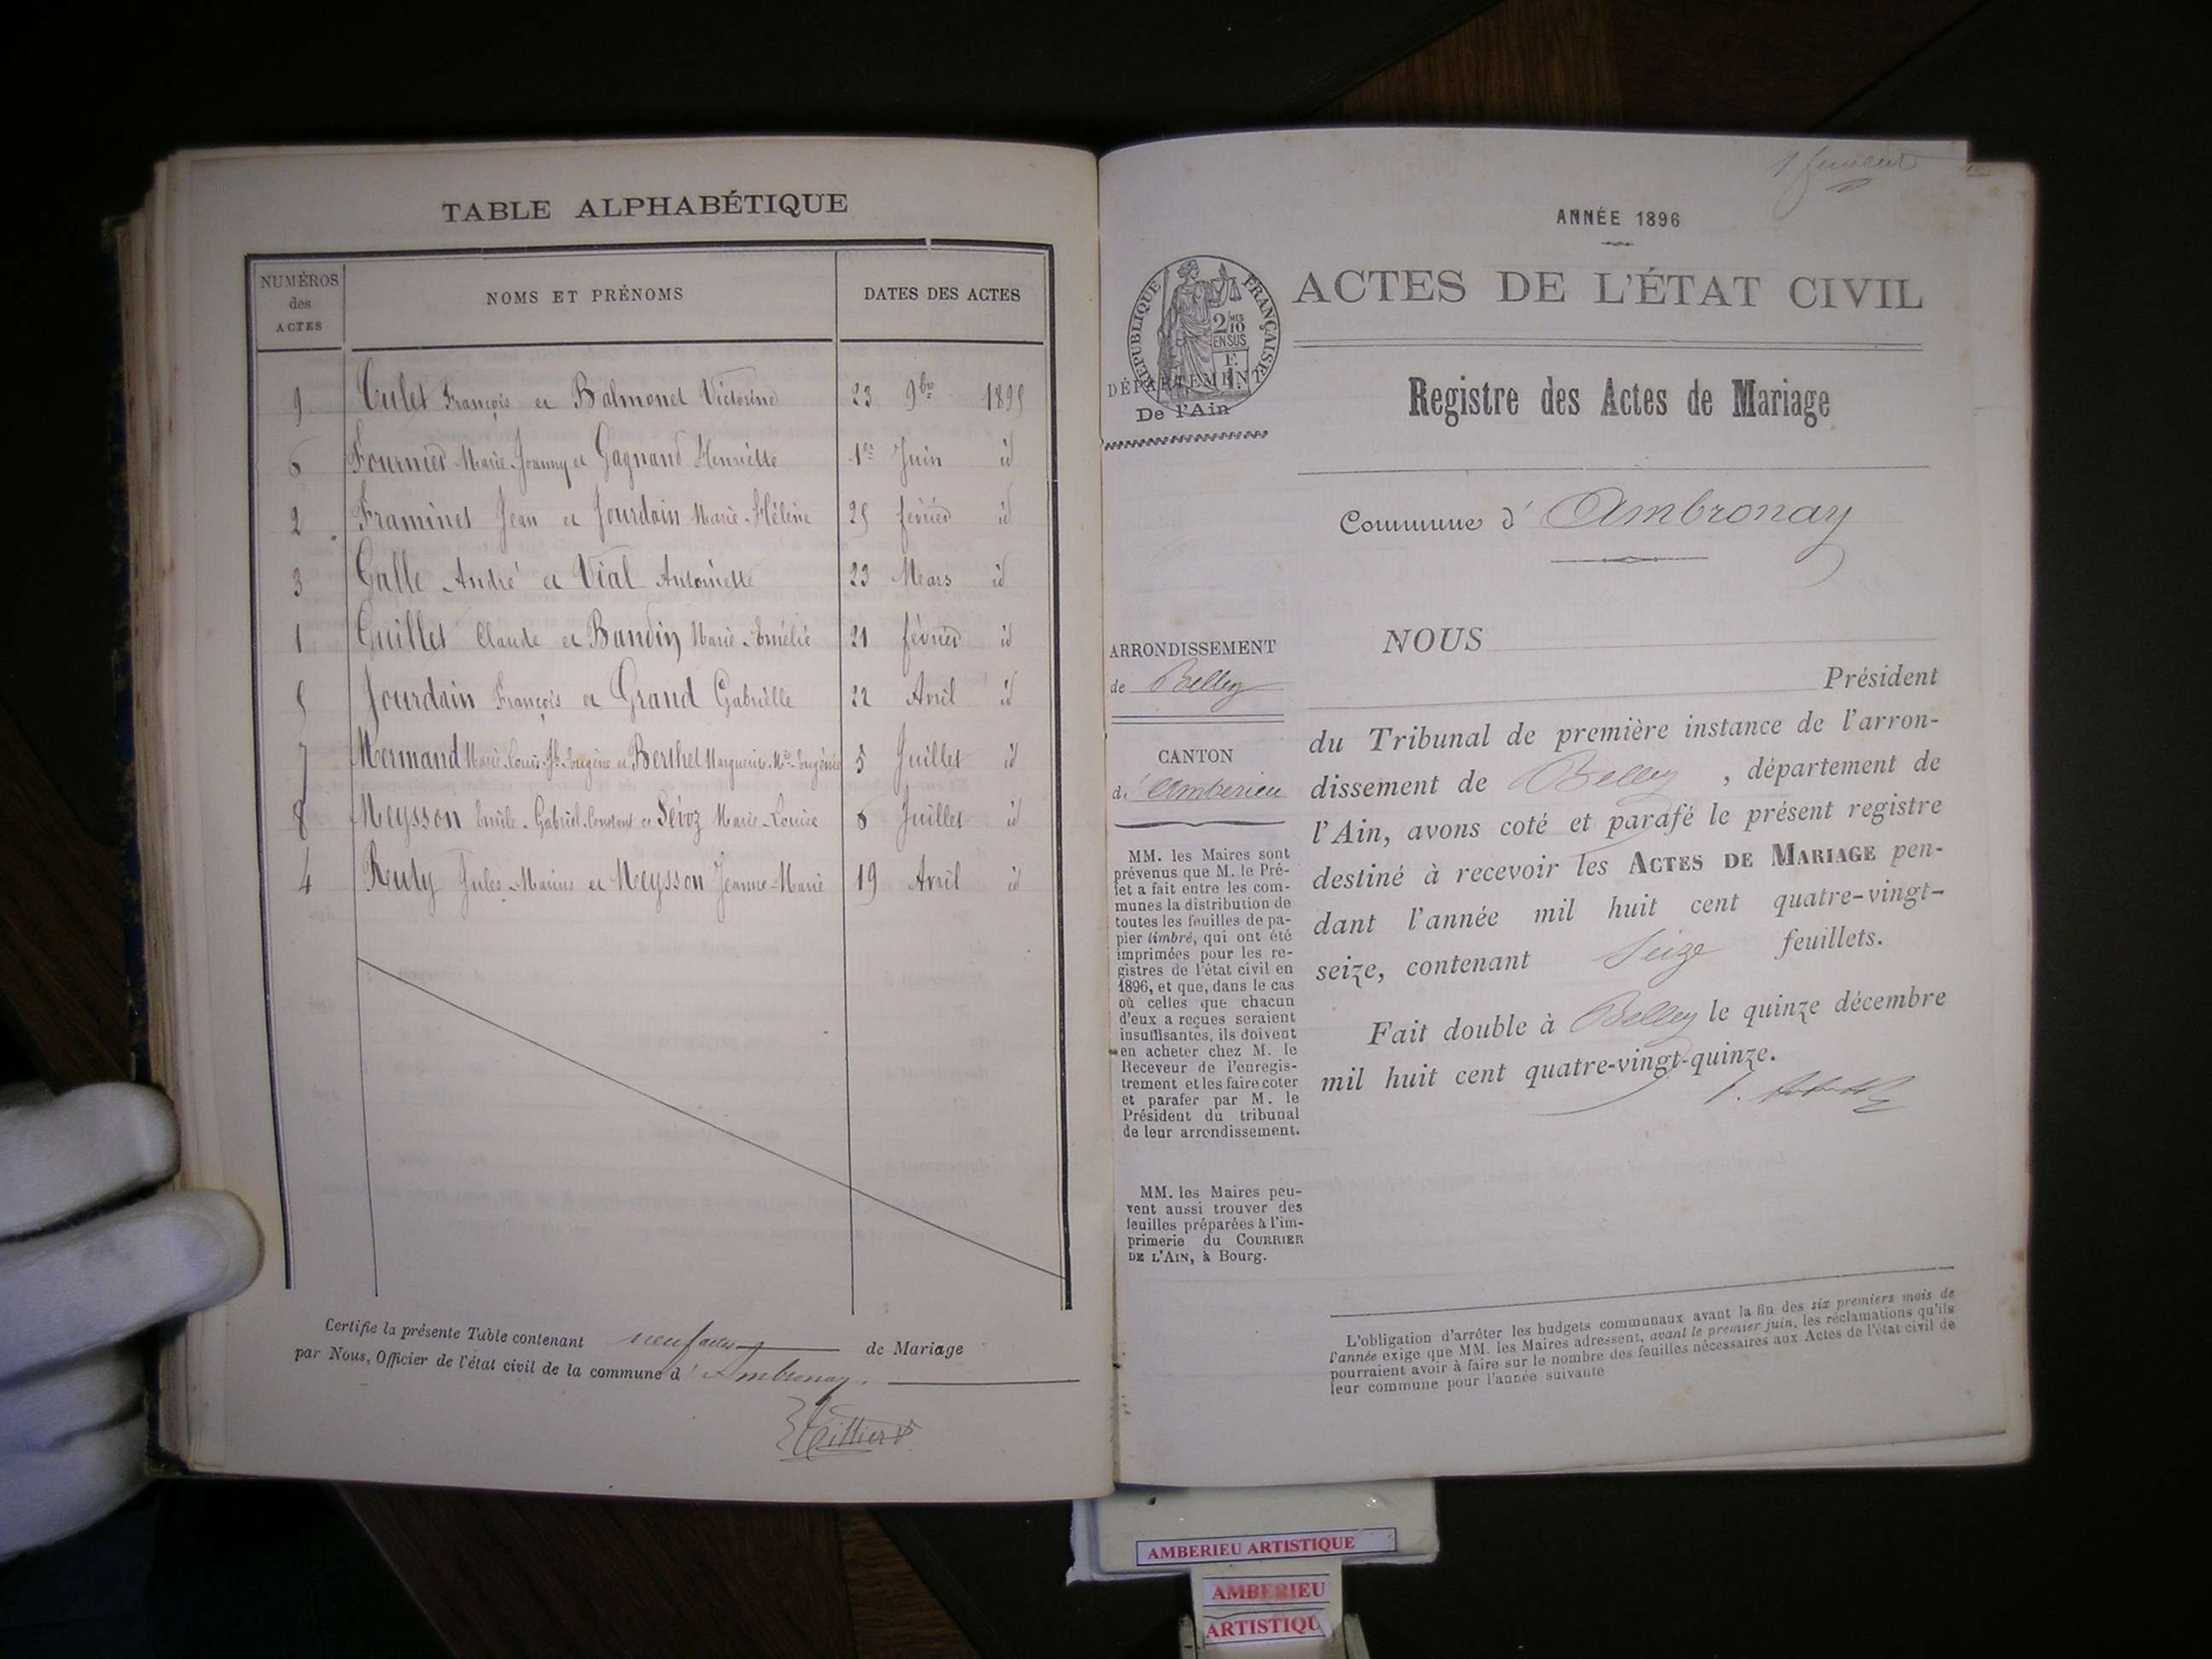 TABLE ALPHABÉTIQUE
NUMÉROS des ACTES
NOMS ET PRÉNOMS
DATES DES ACTES
9 Culet François et Balmonet Victorine 23 9bre 1895
6 Fournier Marie-Joanny et Gagnand Henriette 1er Juin id
2 Framinet Jean et Jourdain Marie-Hélène 25 février id
3 Galle André et Vial Antoinette 23 Mars id
1 Guillet Claude et Baudin Marie-Emélie 21 février id
5 Jourdain François et Grand Gabrielle 22 Avril id
7 Mermand Marie-Louis-Jh-Eugène et Berthet Marguerite-Mie-Eugénie 5 Juillet id
8 Meysson Emile-Gabriel-Constant et Sévoz Marie-Louise 6 Juillet id
4 Ruty Jules-Marius et Meysson Jeanne-Marie 19 Avril id
Certifie la présente Table contenant neuf actes de Mariage
par Nous, Officier de l'état civil de la commune d'Ambronay.
1 feuillet
ANNÉE 1896
RÉPUBLIQUE FRANÇAISE
2/10 EN SUS
F. 1.
ACTES DE L'ÉTAT CIVIL
DÉPARTEMENT
De l'Ain
Registre des Actes de Mariage
Commune d'Ambronay
ARRONDISSEMENT
de Belley
CANTON
d'Ambérieu
MM. les Maires sont
prévenus que M. le Pré-
fet a fait entre les com-
munes la distribution de
toutes les feuilles de pa-
pier timbré, qui ont été
imprimées pour les re-
gistres de l'état civil en
1896, et que, dans le cas
où celles que chacun
d'eux a reçues seraient
insuffisantes, ils doivent
en acheter chez M. le
Receveur de l'enregis-
trement et les faire coter
et parafer par M. le
Président du tribunal
de leur arrondissement.
MM. les Maires peu-
vent aussi trouver des
feuilles préparées à l'im-
primerie du COURRIER
DE L'AIN, à Bourg.
NOUS
Président
du Tribunal de première instance de l'arron-
dissement de Belley, département de
l'Ain, avons coté et parafé le présent registre
destiné à recevoir les ACTES DE MARIAGE pen-
dant l'année mil huit cent quatre-vingt-
seize, contenant Seize feuillets.
Fait double à Belley le quinze décembre
mil huit cent quatre-vingt-quinze.
L'obligation d'arrêter les budgets communaux avant la fin des six premiers mois de
l'année exige que MM. les Maires adressent, avant le premier juin, les réclamations qu'ils
pourraient avoir à faire sur le nombre des feuilles nécessaires aux Actes de l'état civil de
leur commune pour l'année suivante
AMBERIEU ARTISTIQUE
AMBERIEU
ARTISTIQU